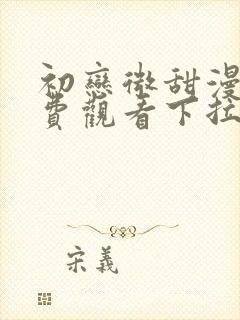 初戀微甜漫
費觀看下拉
宋義